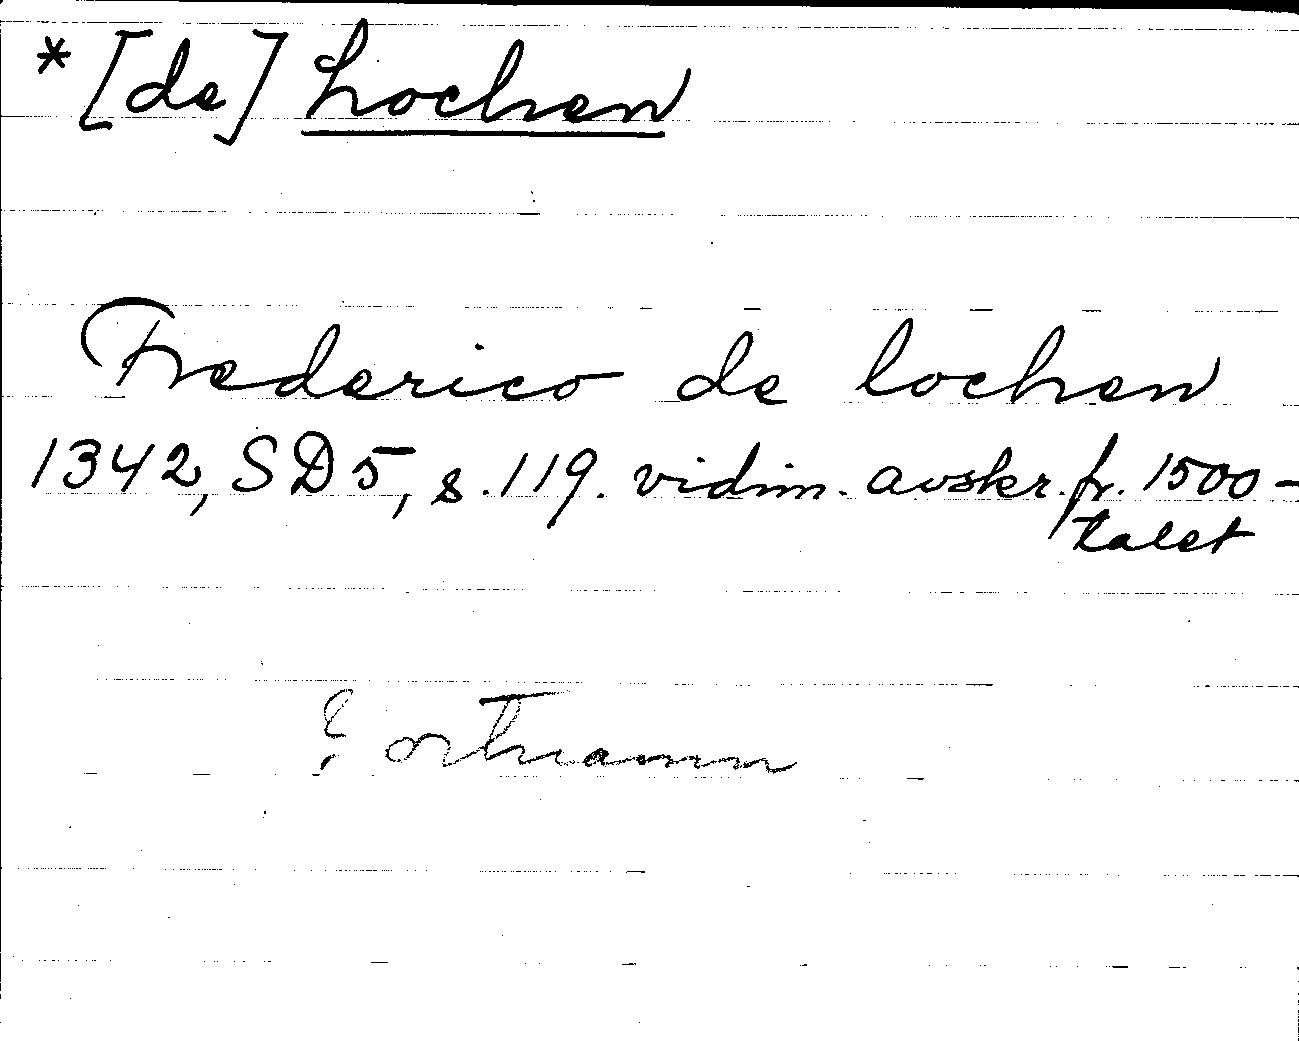 * [de] Lochen
Frederico de lochen
1342, SD5, s. 119. vidim. avskr. fr. 1500-
talet
? ortnamn